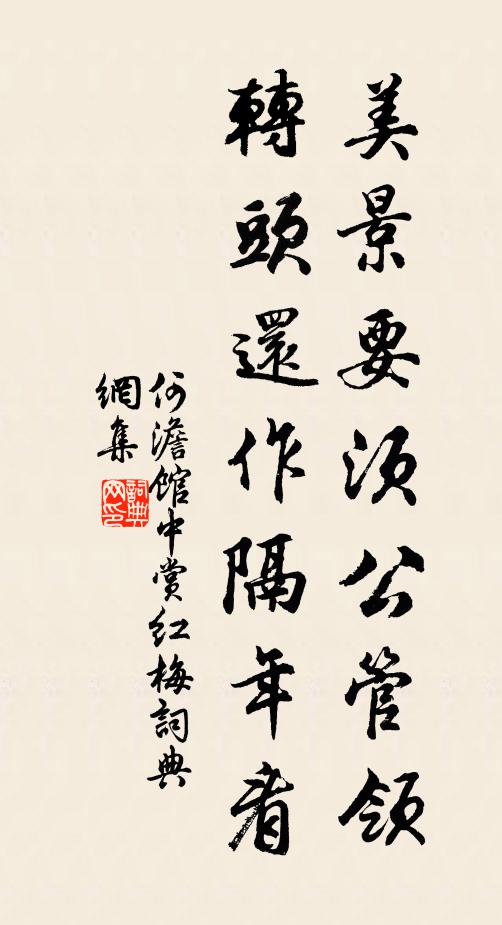 美景要須公管領
轉頭還作隔年看
何澹館中賞紅梅詞典
網集
詞典
网印